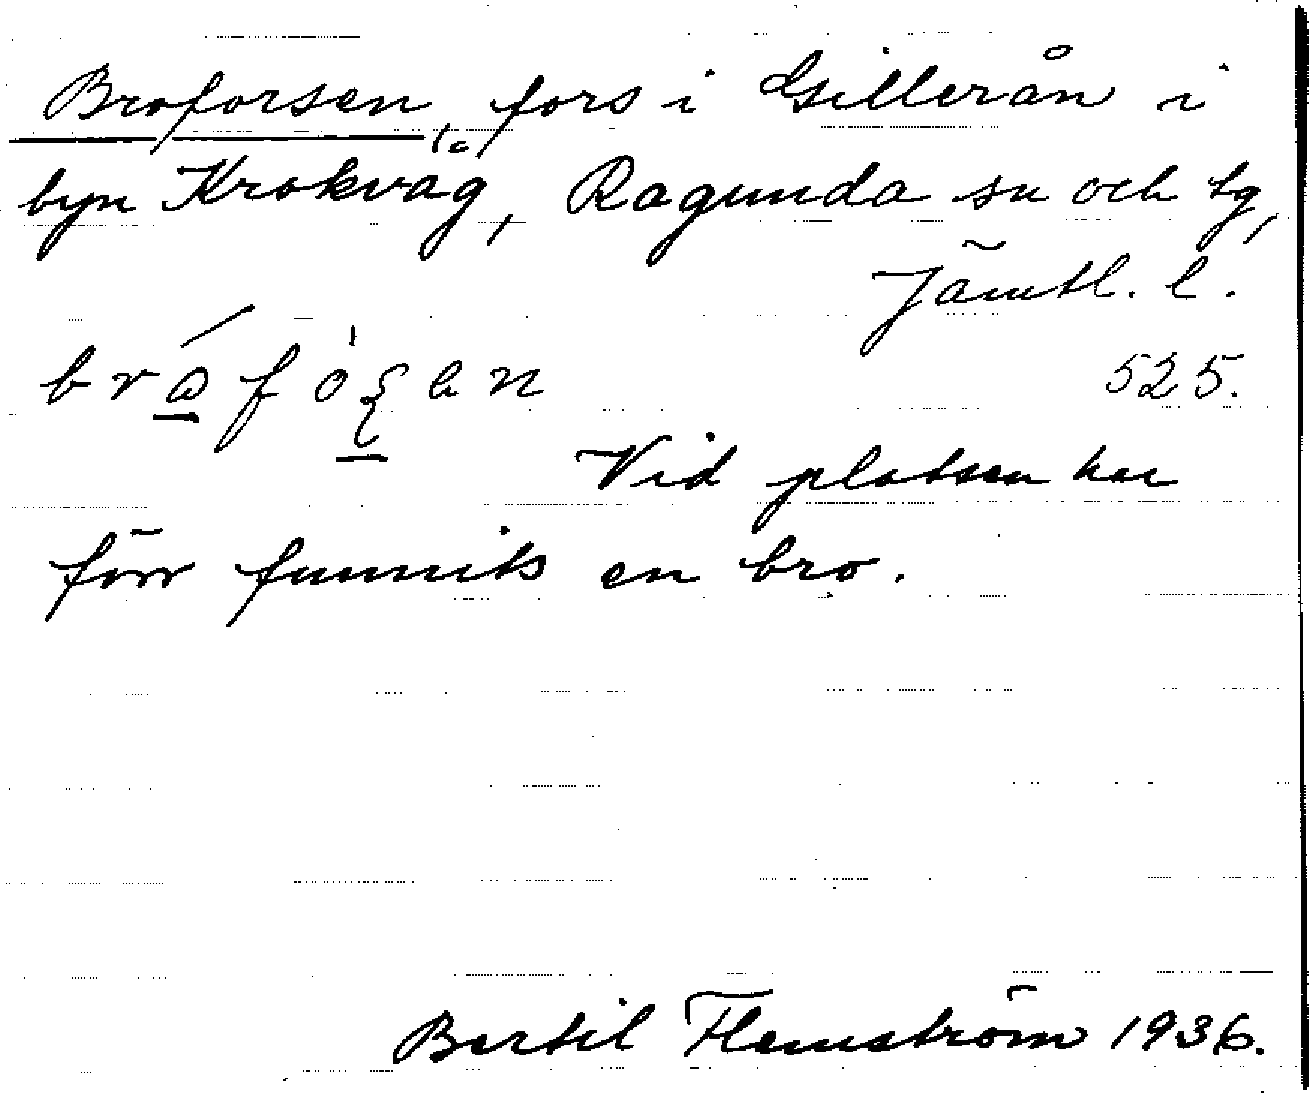 Broforsen, fors i Gillerån i
byn Krokvåg, Ragunda sn och tg,
Jämtl. l.
525.
Vid platsen har
förr funnits en bro.
Bertil Flemström 1936.